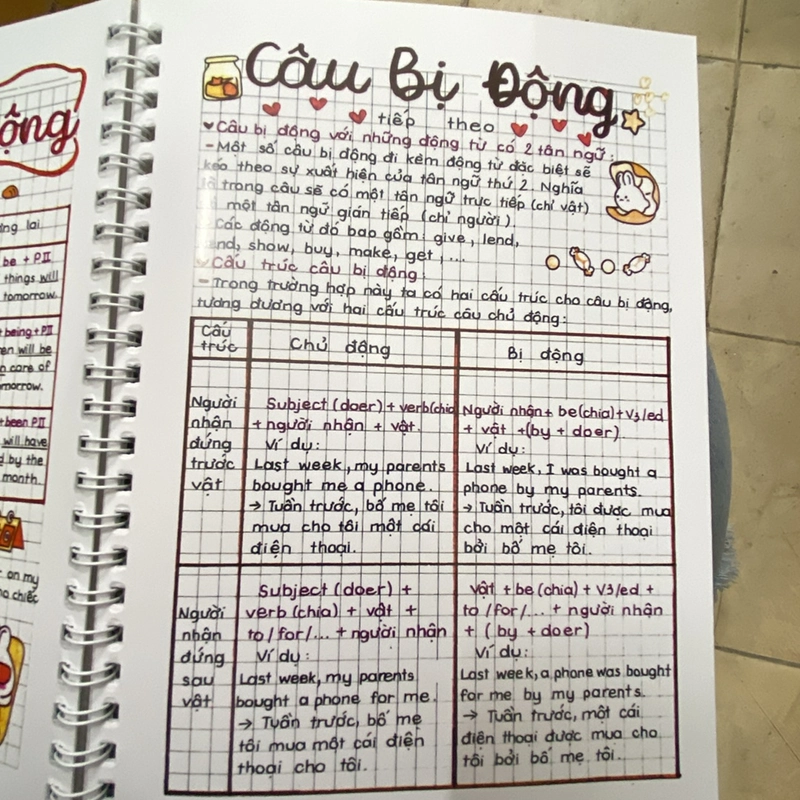 ộng
ng lai
be + PII
things will
tomorrow.
being + PII
en will be
n care of
morrow.
been PII
will have
d by the
month.
on my
chiếc
Câu Bị Động
tiếp theo
Câu bị động với những động từ có 2 tân ngữ:
- Một số câu bị động đi kèm động từ đặc biệt sẽ
kéo theo sự xuất hiện của tân ngữ thứ 2. Nghĩa
là trong câu sẽ có một tân ngữ trực tiếp (chỉ vật)
một tân ngữ gián tiếp (chỉ người).
Các động từ đó bao gồm: give, lend,
show, buy, make, get, ...
Cấu trúc câu bị động:
- Trong trường hợp này ta có hai cấu trúc cho câu bị động,
tương đương với hai cấu trúc câu chủ động:
Cấu trúc
Chủ động
Bị động
Người
nhận
đứng
trước
vật
Subject (doer) + verb (chia)
+ người nhận + vật.
Ví dụ:
Last week, my parents
bought me a phone.
→ Tuần trước, bố mẹ tôi
mua cho tôi một cái
điện thoại.
Người nhận + be (chia) + V3/ed
+ vật + (by + doer)
Ví dụ:
Last week, I was bought a
phone by my parents.
→ Tuần trước, tôi được mua
cho một cái điện thoại
bởi bố mẹ tôi.
Người
nhận
đứng
sau
vật
Subject (doer) +
verb (chia) + vật +
to / for /... + người nhận
Ví dụ:
Last week, my parents
bought a phone for me.
→ Tuần trước, bố mẹ
tôi mua một cái điện
thoại cho tôi.
vật + be (chia) + V3/ed +
to / for /... + người nhận
+ (by + doer)
Ví dụ:
Last week, a phone was bought
for me by my parents.
→ Tuần trước, một cái
điện thoại được mua cho
tôi bởi bố mẹ tôi.